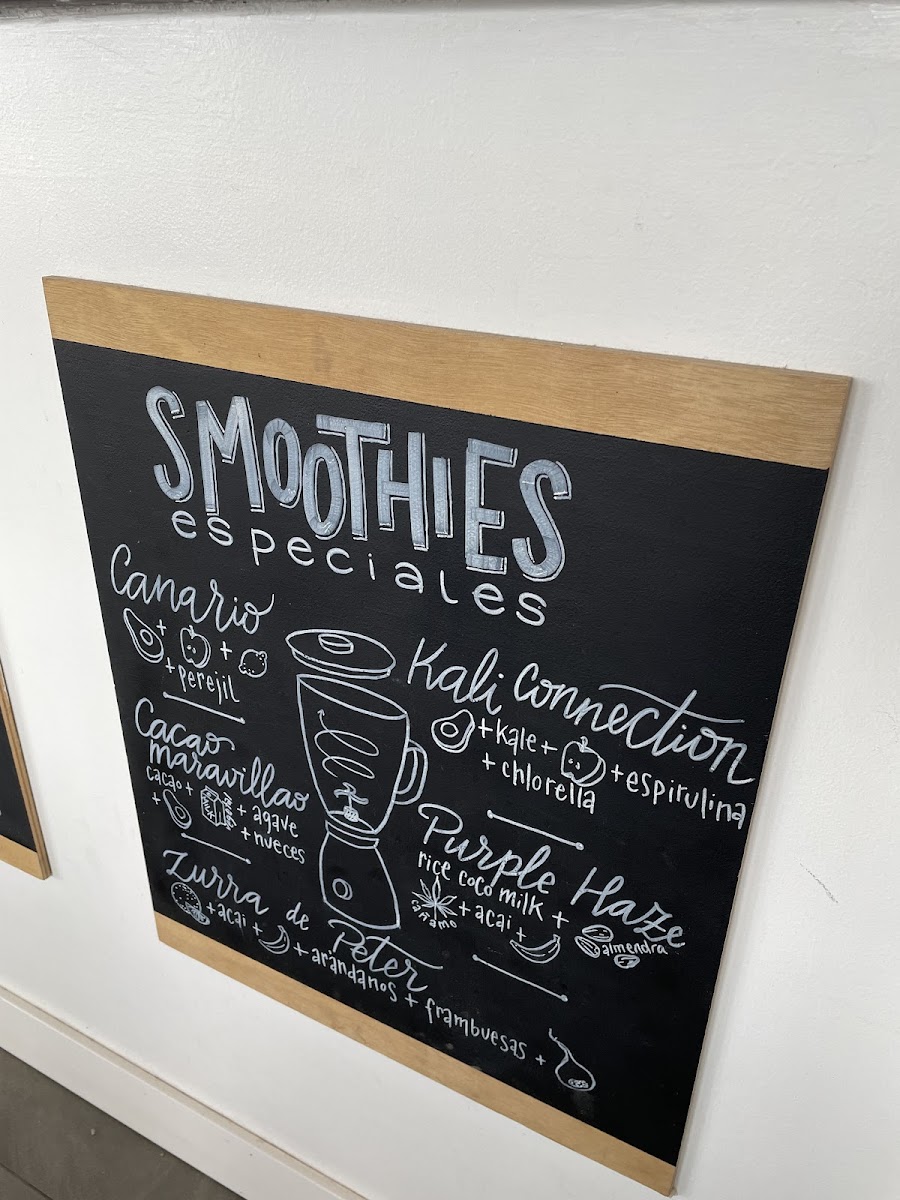 SMOOTHIES
especiales
Canario
+ + +
+ perejil
Cacao
maravillao
cacao +
+ + agave
+ nueces
Zurra de Peter
+ acai + + arandanos + frambuesas +
Kali Connection
+ kale + + espirulina
+ chlorella
Purple Haze
rice coco milk +
cañamo + acai + almendra